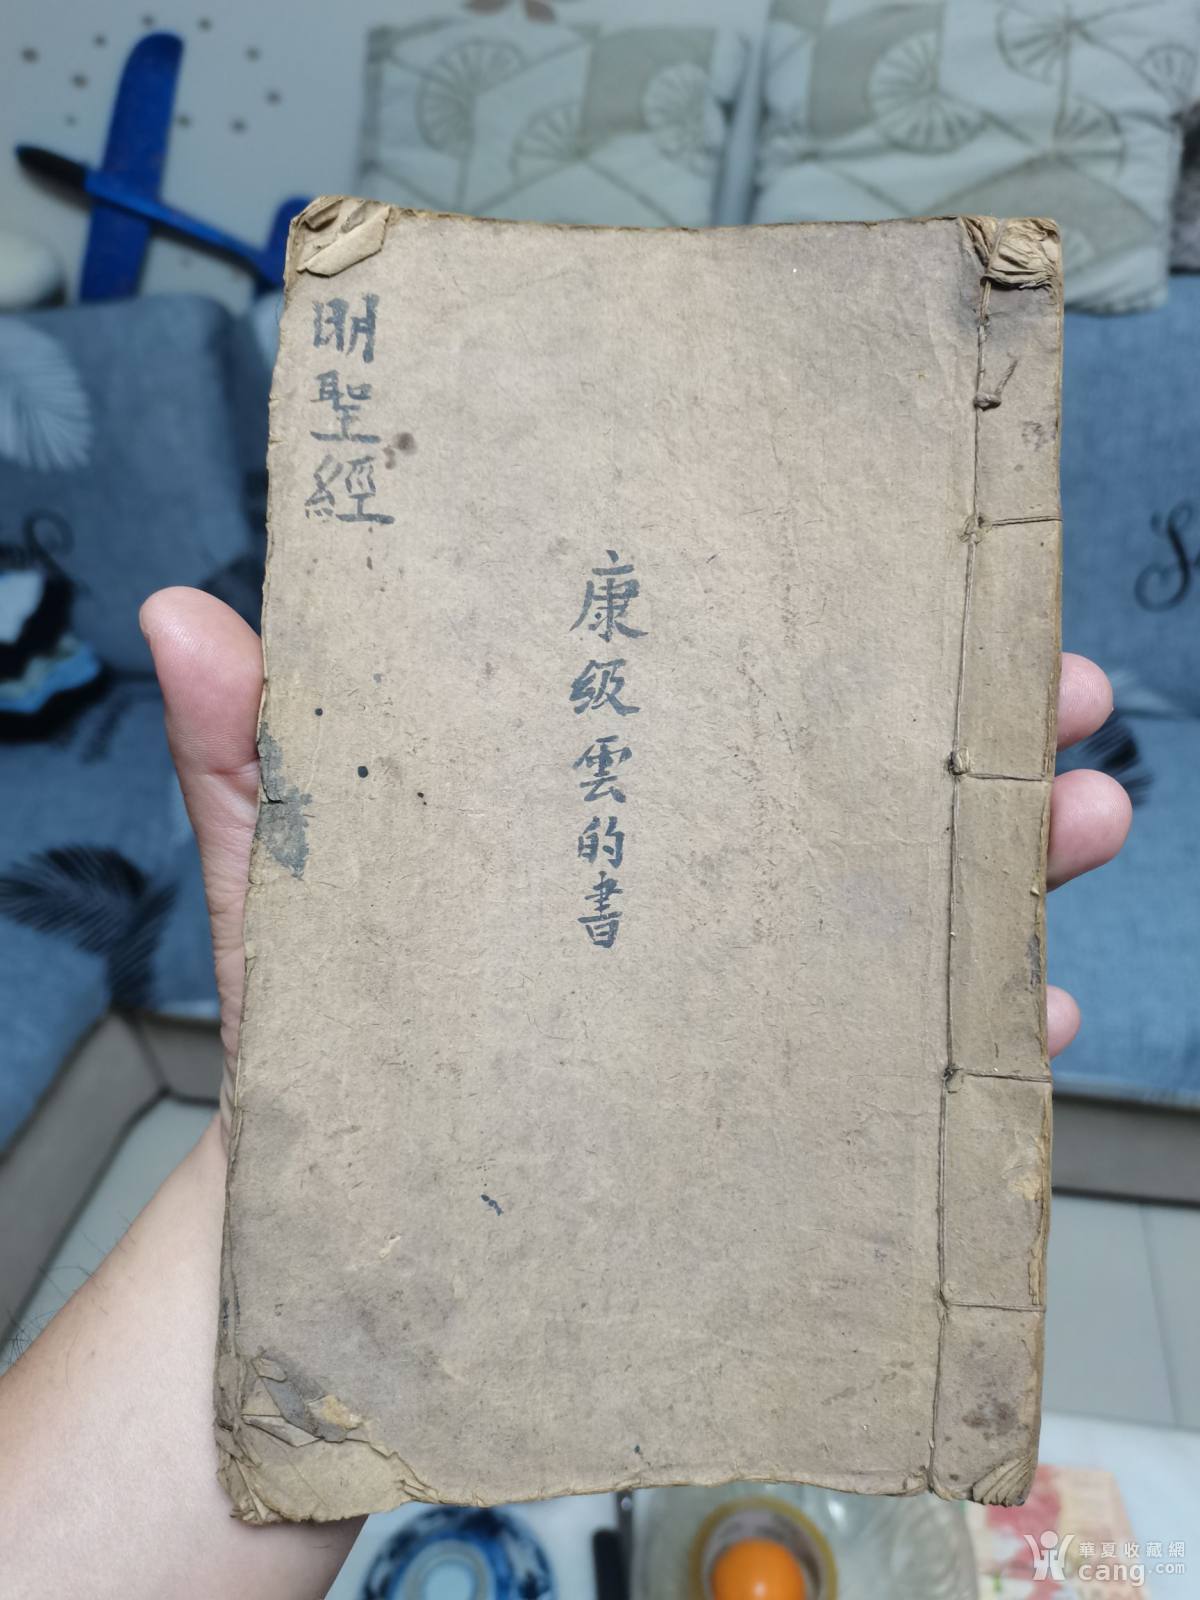 明聖經
康級雲的書
華夏收藏網
cang.com